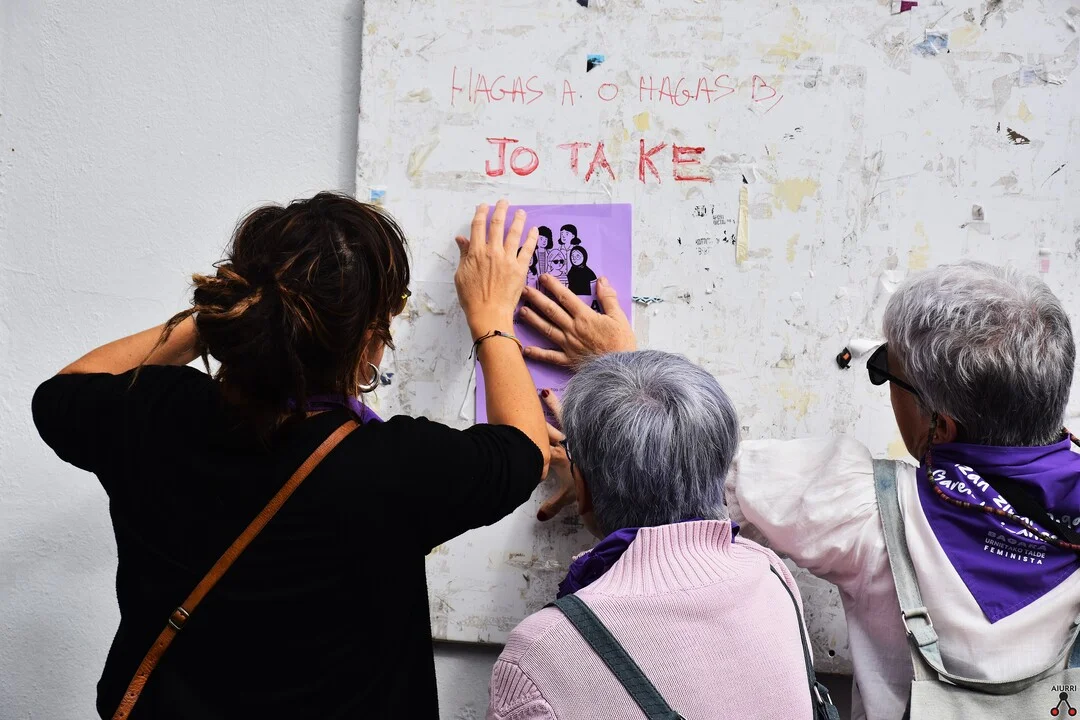 HAGAS A. O HAGAS B,
JO TA KE
BAGARA
URNIETAKO TALDE
FEMINISTA
AIURRI